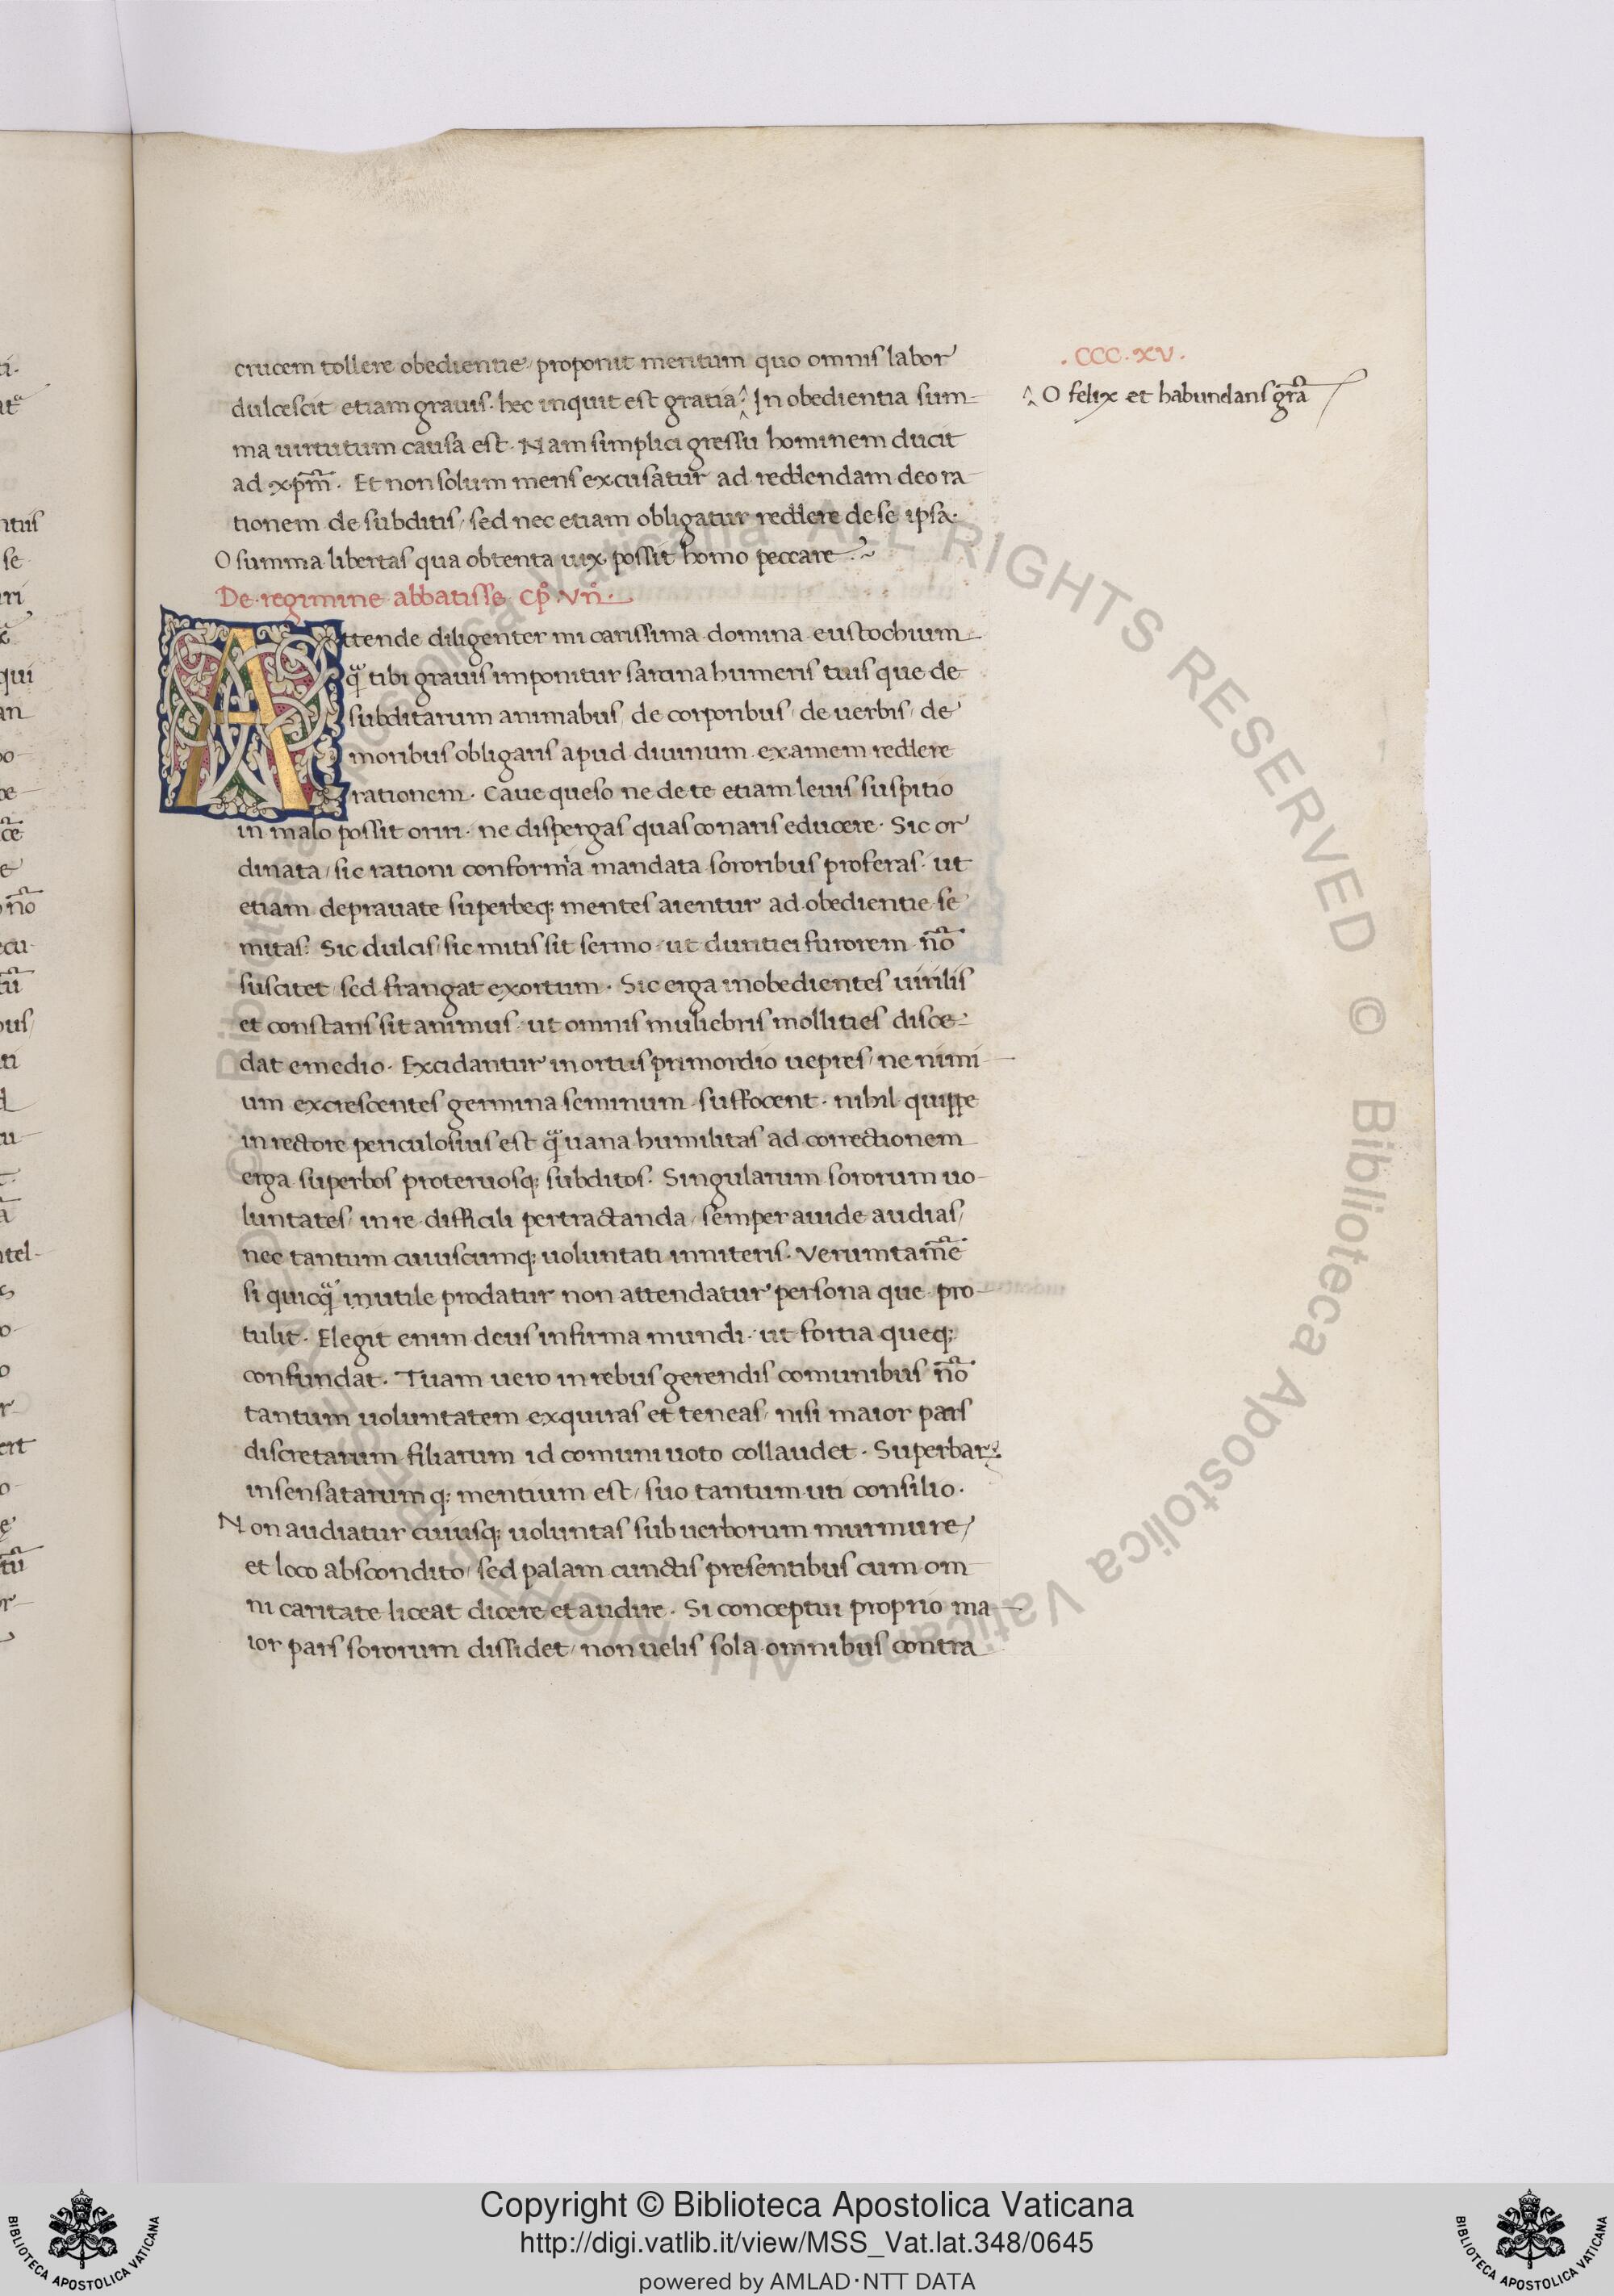 . CCC . XV .
crucem tollere obedientie / proponit meritum quo omnis labor
dulcescit etiam grauis . hec inquit est gratia ^ . In obedientia sum-
^ O felix et habundans gr̄a
ma uirtutum causa est . Nam simplici gressu hominem ducit
ad xp̄m . Et non solum mens excusatur ad reddendam deo ra-
tionem de subditis / sed nec etiam obligatur reddere de se ipsa .
O summa libertas qua obtenta uix possit homo peccare . ~
De regimine abbatisse Cp̊ . Vn̊ .
Attende diligenter mi carissima domina eustochium
q̄ tibi grauis imponitur sarcina humeris tuis que de
subditarum animabus / de corporibus / de uerbis / de
moribus obligaris apud diuinum examem reddere
rationem . Caue queso ne de te etiam leuis suspitio
in malo possit oriri . ne dispergas quas conaris educere . Sic or
dinata / sic rationi conformia mandata sororibus proferas . ut
etiam deprauate superbeq; mentes aientur ad obedientie se
mitas . Sic dulcis / sic mitis sit sermo . ut duritiei furorem nō
suscitet / sed frangat exortum . Sic erga inobedientes uirilis
et constans sit animus . ut omnis muliebris mollities disce-
dat e medio . Excidantur in ortus primordio uepres / ne nimi-
um excrescentes germina seminum suffocent . nihil quippe
in rectore periculosius est q̄ uana humilitas ad correctionem
erga superbos proteruosq; subditos . Singularum sororum uo-
luntates / in re difficili pertractanda / semper auide audias /
nec tantum cuiuscumq; uoluntati inniteris . Verumtamē
si quicq̄ inutile prodatur non attendatur persona que pro-
tulit . Elegit enim deus infirma mundi . ut fortia queq;
confundat . Tuam uero in rebus gerendis comunibus nō
tantum uoluntatem exquiras et teneas / nisi maior pars
discretarum filiarum id comuni uoto collaudet . Superbaꝝ
insensatarumq; mentium est / suo tantum uti consilio .
Non audiatur cuiusq; uoluntas sub uerborum murmure /
et loco abscondito / sed palam cunctis presentibus cum om
ni caritate liceat dicere et audire . Si conceptui proprio ma-
ior pars sororum dissidet / non uelis sola omnibus contra
Copyright © Biblioteca Apostolica Vaticana
http://digi.vatlib.it/view/MSS_Vat.lat.348/0645
powered by AMLAD · NTT DATA
BIBLIOTECA APOSTOLICA VATICANA
BIBLIOTECA APOSTOLICA VATICANA
© Biblioteca Apostolica Vaticana ALL RIGHTS RESERVED © Biblioteca Apostolica Vaticana ALL RIGHTS RESERVED